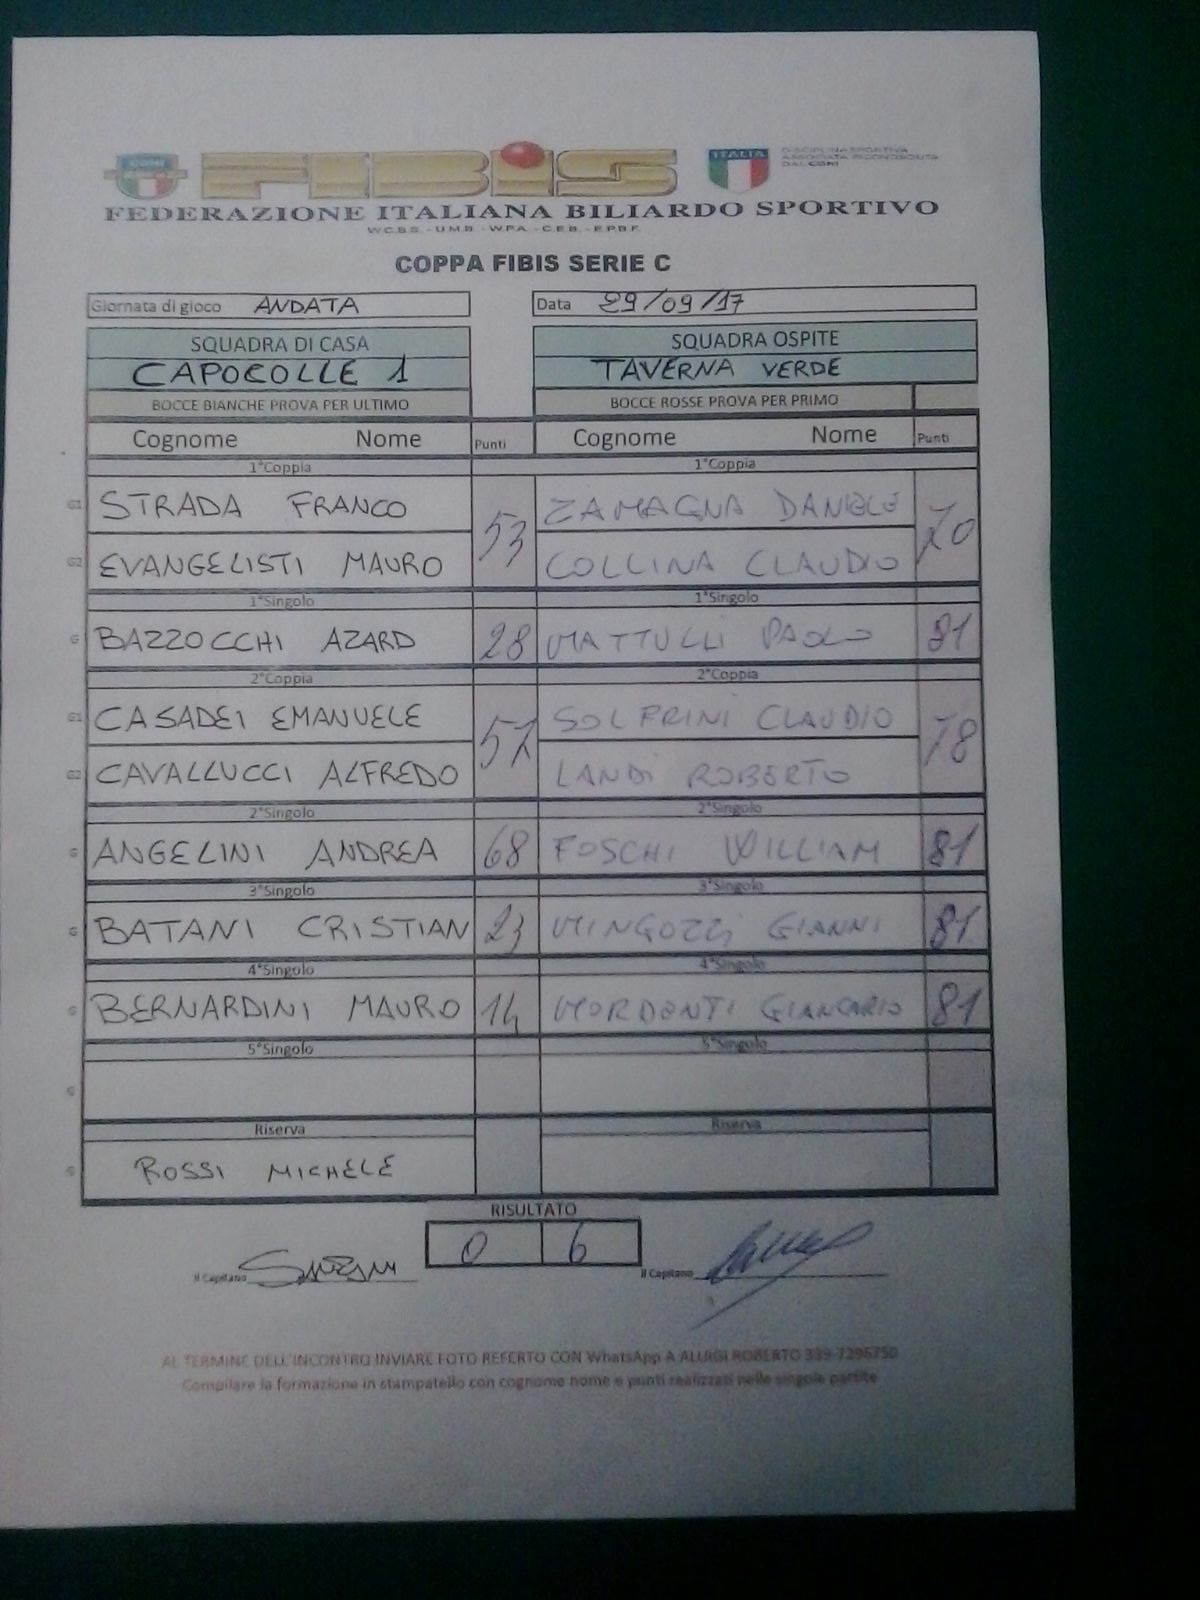 CONI
FIBIS
ITALIA
DISCIPLINA SPORTIVA
ASSOCIATA RICONOSCIUTA
DAL CONI
FEDERAZIONE ITALIANA BILIARDO SPORTIVO
W.C.B.S. - U.M.B. - W.P.A. - C.E.B. - E.P.B.F.
COPPA FIBIS SERIE C
Giornata di gioco ANDATA Data 29/09/17
SQUADRA DI CASA SQUADRA OSPITE
CAPOCOLLE 1 TAVERNA VERDE
BOCCE BIANCHE PROVA PER ULTIMO BOCCE ROSSE PROVA PER PRIMO
Cognome Nome Punti Cognome Nome Punti
1°Coppia 1°Coppia
G1 STRADA FRANCO 53 ZAMAGNA DANIELE 70
G2 EVANGELISTI MAURO COLLINA CLAUDIO
1°Singolo 1°Singolo
G BAZZOCCHI AZARD 28 MATTULLI PAOLO 81
2°Coppia 2°Coppia
G1 CASADEI EMANUELE 57 SOLFRINI CLAUDIO 78
G2 CAVALLUCCI ALFREDO LANDI ROBERTO
2°Singolo 2°Singolo
G ANGELINI ANDREA 68 FOSCHI WILLIAM 81
3°Singolo 3°Singolo
G BATANI CRISTIAN 23 MINGOZZI GIANNI 81
4°Singolo 4°Singolo
G BERNARDINI MAURO 14 MORDENTI GIANCARLO 81
5°Singolo 5°Singolo
G
Riserva Riserva
G ROSSI MICHELE
RISULTATO
0 6
Il Capitano Il Capitano
AL TERMINE DELL'INCONTRO INVIARE FOTO REFERTO CON WhatsApp A ALUIGI ROBERTO 339-7296750
Compilare la formazione in stampatello con cognome nome e punti realizzati nelle singole partite